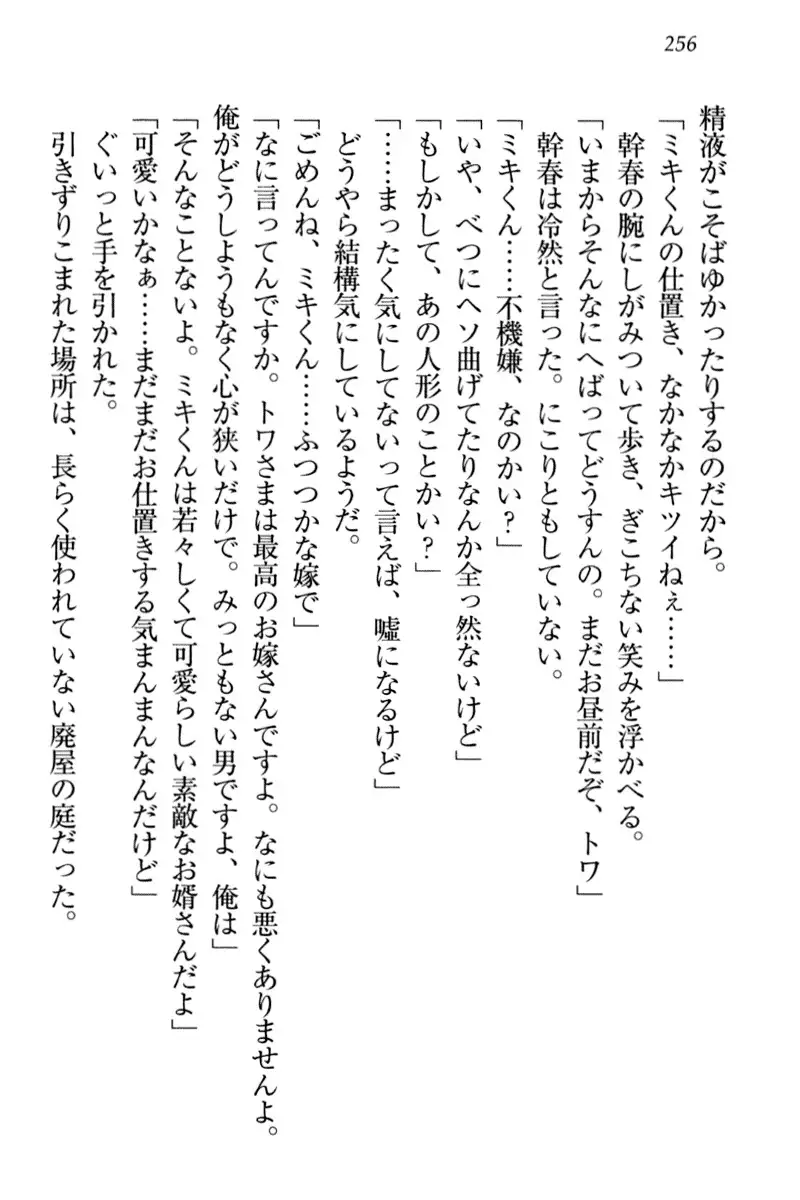 256
精液がこそばゆかったりするのだから。
「ミキくんの仕置き、なかなかキツイねぇ……」
幹春の腕にしがみついて歩き、ぎこちない笑みを浮かべる。
「いまからそんなにへばってどうすんの。まだお昼前だぞ、トワ」
幹春は冷然と言った。にこりともしていない。
「ミキくん……不機嫌、なのかい？」
「いや、べつにヘソ曲げてたりなんか全っ然ないけど」
「もしかして、あの人形のことかい？」
「……まったく気にしてないって言えば、嘘になるけど」
どうやら結構気にしているようだ。
「ごめんね、ミキくん……ふつつかな嫁で」
「なに言ってんですか。トワさまは最高のお嫁さんですよ。なにも悪くありませんよ。
俺がどうしようもなく心が狭いだけで。みっともない男ですよ、俺は」
「そんなことないよ。ミキくんは若々しくて可愛らしい素敵なお婿さんだよ」
「可愛いかなぁ……まだまだお仕置きする気まんまんなんだけど」
ぐいっと手を引かれた。
引きずりこまれた場所は、長らく使われていない廃屋の庭だった。